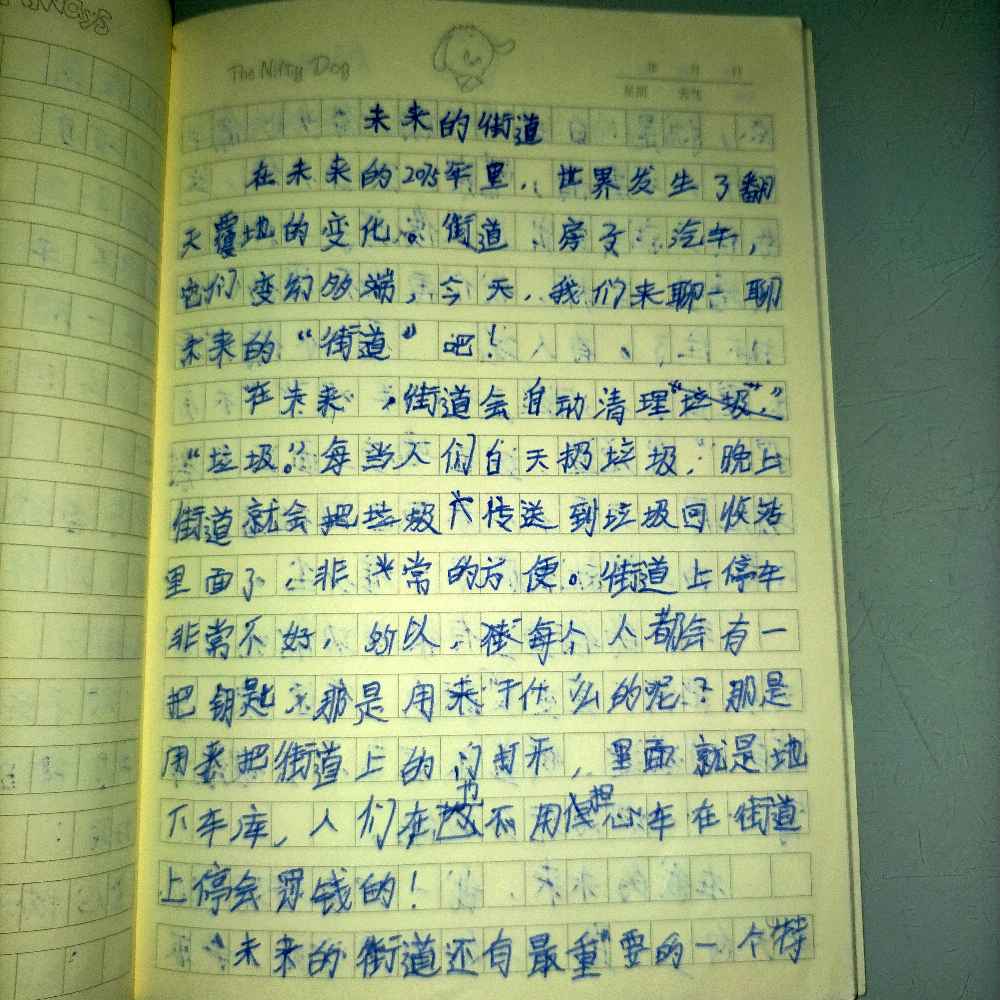 The Nifty Dog
年 月 日
星期 天气
未来的街道
在未来的2075年里,世界发生了翻
天覆地的变化。街道、房子、汽车,
它们变幻多端,今天,我们来聊一聊
未来的“街道”吧!
在未来,街道会自动清理“垃圾”,
“垃圾。每当人们白天扔垃圾,晚上
街道就会把垃圾传送到垃圾回收站
里面了,非常的方便。街道上停车
非常不好,所以,每个人都会有一
把钥匙,那是用来干什么的呢?那是
用来把街道上的门打开,里面就是地
下车库,人们在也不用担心车在街道
上停会罚钱的!
未来的街道还有最重要的一个特